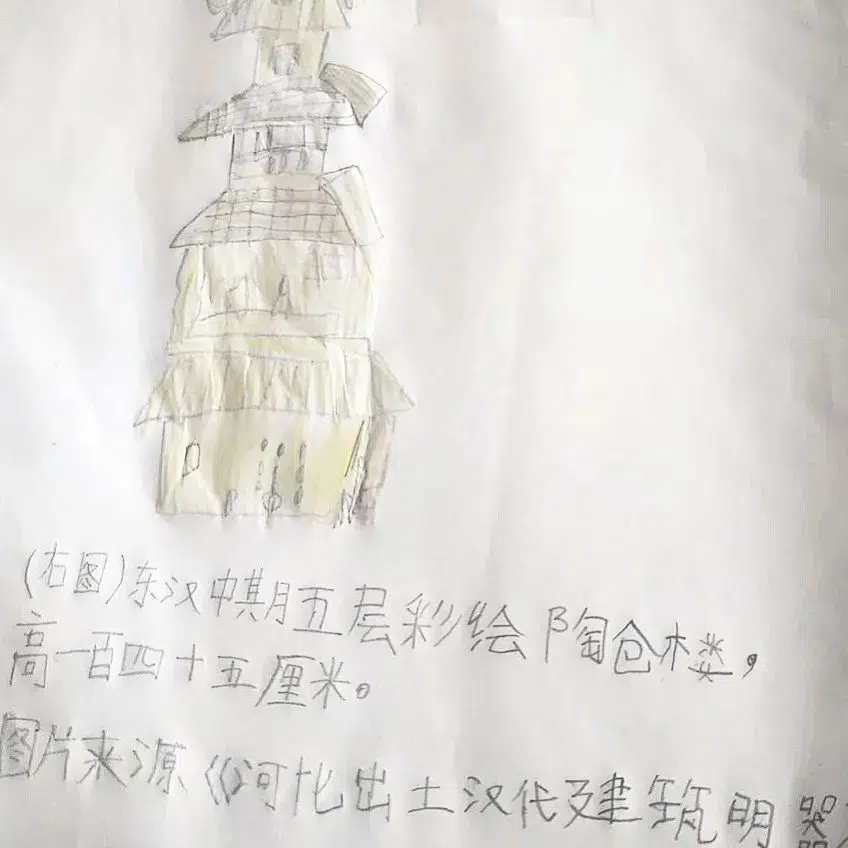 (右图)东汉中期五层彩绘陶仓楼,
高一百四十五厘米。
图片来源《河北出土汉代建筑明器